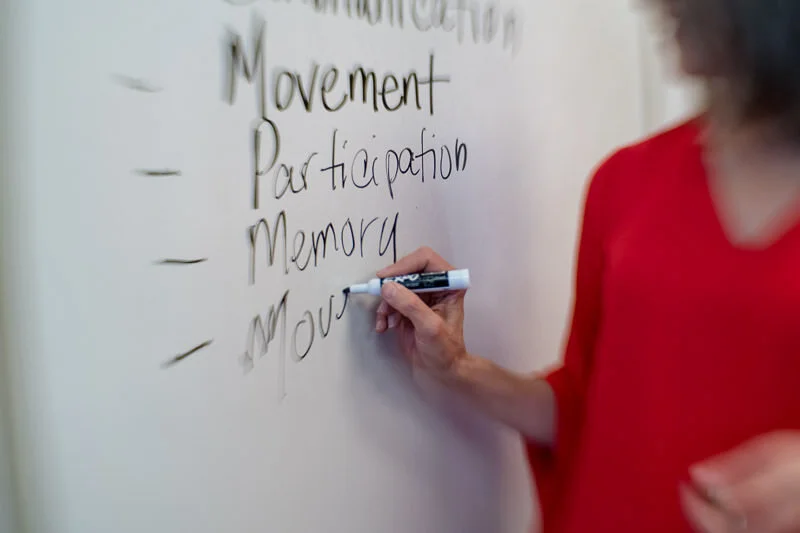 Communication
- Movement
- Participation
- Memory
- Mov
EXPO